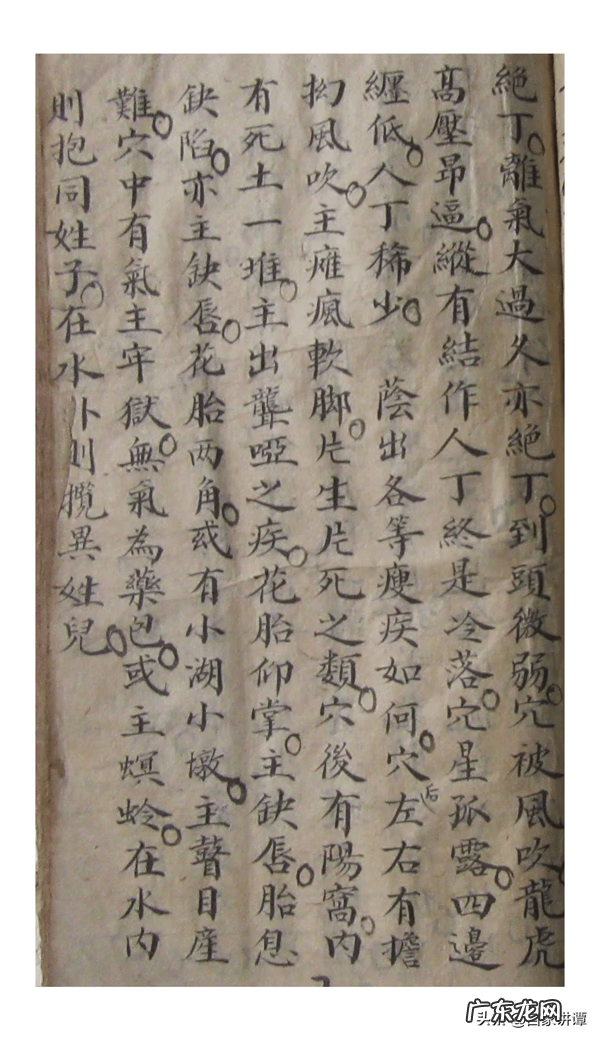 絕丁。離氣大過久亦絕丁。到頭微弱。穴被風吹龍虎
高壓昂逼。縱有結作人丁終是冷落。穴星孤露。四邊
纏低。人丁稀少。 蔭出各等瘦疾如何。穴后左右有擔
拗風吹。主瘫瘋軟脚。片生片死之類。穴後有陽窩。内
有死土一堆。主出聾啞之疾。花胎仰掌。主缺唇。胎息
缺陷。亦主缺唇。花胎两角。或有小湖小墩。主瞽目産
難。穴中有氣主牢獄。無氣為藥包。或主螟蛉。在水内
則抱同姓子。在水外則攬異姓兒。
广东龙网